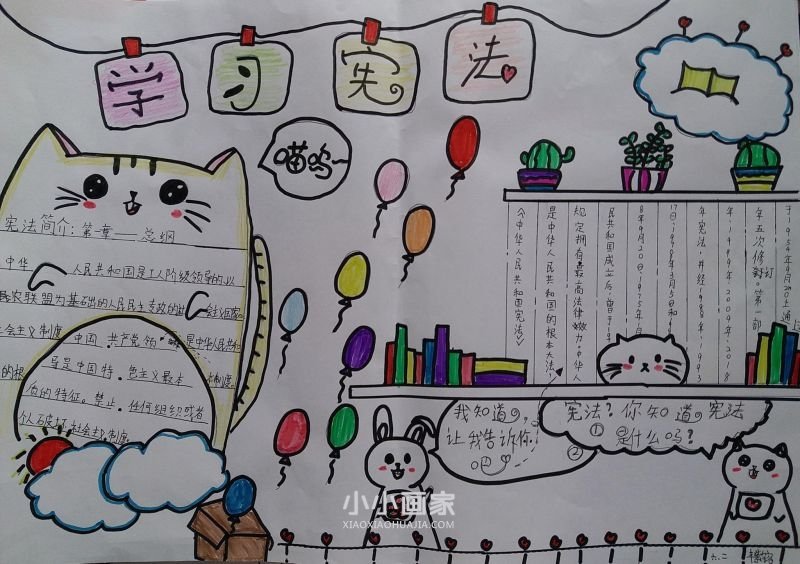 学习宪法
喵呜~
宪法简介:第一章——总纲
中华
人民共和国是工人阶级领导的以
农联盟为基础的人民民主专政的
社会主义制度
中国
共产党领
是中华人民共和
的根
导是中国特
色主义最本
制度
的特征。禁止
任何组织或者
个人破坏
社会主义制度。
《中华人民共和国宪法》
是中华人民共和国的根本大法,
规定拥有最高法律效力。中华人
民共和国成立后,曾于
年9月20日、1975年
17日、1978年3月5日和
年宪法,并经1988年、1993
年、1999年、2004年、2018
年五次修订。第一部
宪法?你知道宪法
①是什么吗?
我知道,
让我告诉你!
②
小小画家
XIAOXIAOHUAJIA.COM
六.二